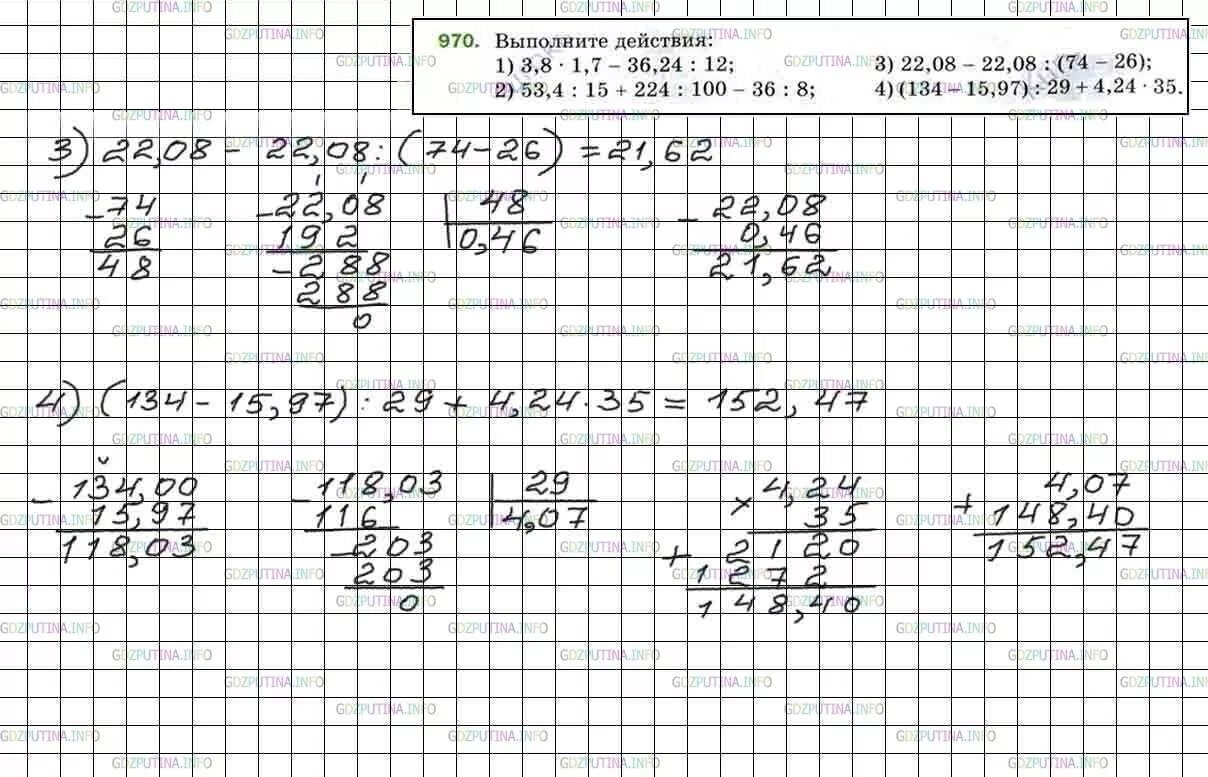 970. Выполните действия:
1) 3,8 · 1,7 – 36,24 : 12;
2) 53,4 : 15 + 224 : 100 – 36 : 8;
3) 22,08 – 22,08 : (74 – 26);
4) (134 – 15,97) : 29 + 4,24 · 35.
3) 22,08 - 22,08 : (74 - 26) = 21,62
- 74
26
48
- 22,08
192
- 288
288
0
48
0,46
- 22,08
0,46
21,62
4) (134 - 15,97) : 29 + 4,24 · 35 = 152,47
- 134,00
15,97
118,03
- 118,03
116
- 203
203
0
29
4,07
× 4,24
35
+ 2120
1272
148,40
+ 4,07
148,40
152,47
GDZPUTINA.INFO